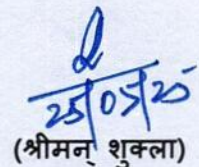 25/05/25
(श्रीमन् शुक्ला)